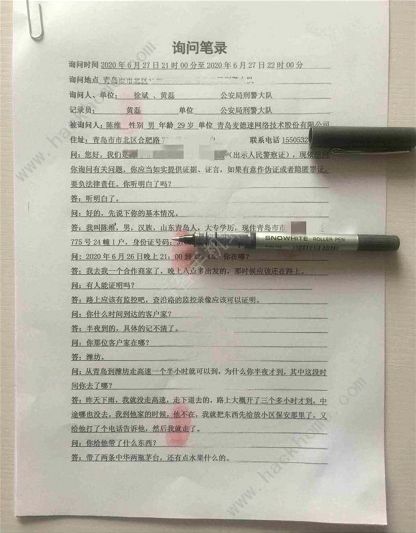 询问笔录
询问时间 2020 年 6 月 27 日 21 时 00 分至 2020 年 6 月 27 日 22 时 00 分
询问地点 青岛市市北区
询问人、单位: 徐斌 、黄磊 公安局刑警大队
记录员: 黄磊 单位 公安局刑警大队
被询问人: 陈维 性别 男 年龄 29 岁 单位 青岛麦德速网络技术股份有限公司
住址: 青岛市市北区合肥路 联系电话 1550532
问: 您好,我们是 (出示人民警察证),现依法
你询问有关问题,你应当如实提供证据、证言,如果有意作伪证或者隐匿罪证,
要负法律责任。你听明白了吗?
答: 听明白了。
问: 好的。先说下你的基本情况。
答: 我叫陈维,男,汉族,山东青岛人,大专学历,现住青岛市市
775 号 24 幢 1 户,身份证号码:
问: 2020 年 6 月 26 日晚上 21:00 你在哪?
答: 我去我一个合作商家了,晚上八点多出发的,那时候应该还在路上。
问: 有人能证明吗?
答: 路上应该有监控吧,查沿路的监控录像应该可以证明。
问: 你什么时间到达的客户家?
答: 半夜到的,具体的记不清了。
问: 你那位客户家在哪?
答: 潍坊。
问: 从青岛到潍坊走高速一个半小时就可以到,为什么你半夜才到,其中这段时
间你去了哪?
答: 昨天下雨,我就没走高速,走下道去的,路上大概开了三个多小时才到,中
途哪也没去,我到他家的时候,他不在,我就把东西先给放小区保安那里了,又
给他打了个电话告诉他,然后我就走了。
问: 你给他带了什么东西?
答: 带了两条中华两瓶茅台,还有点水果什么的。
SNOWHITE ROLLER PEN
www.hackhome.com